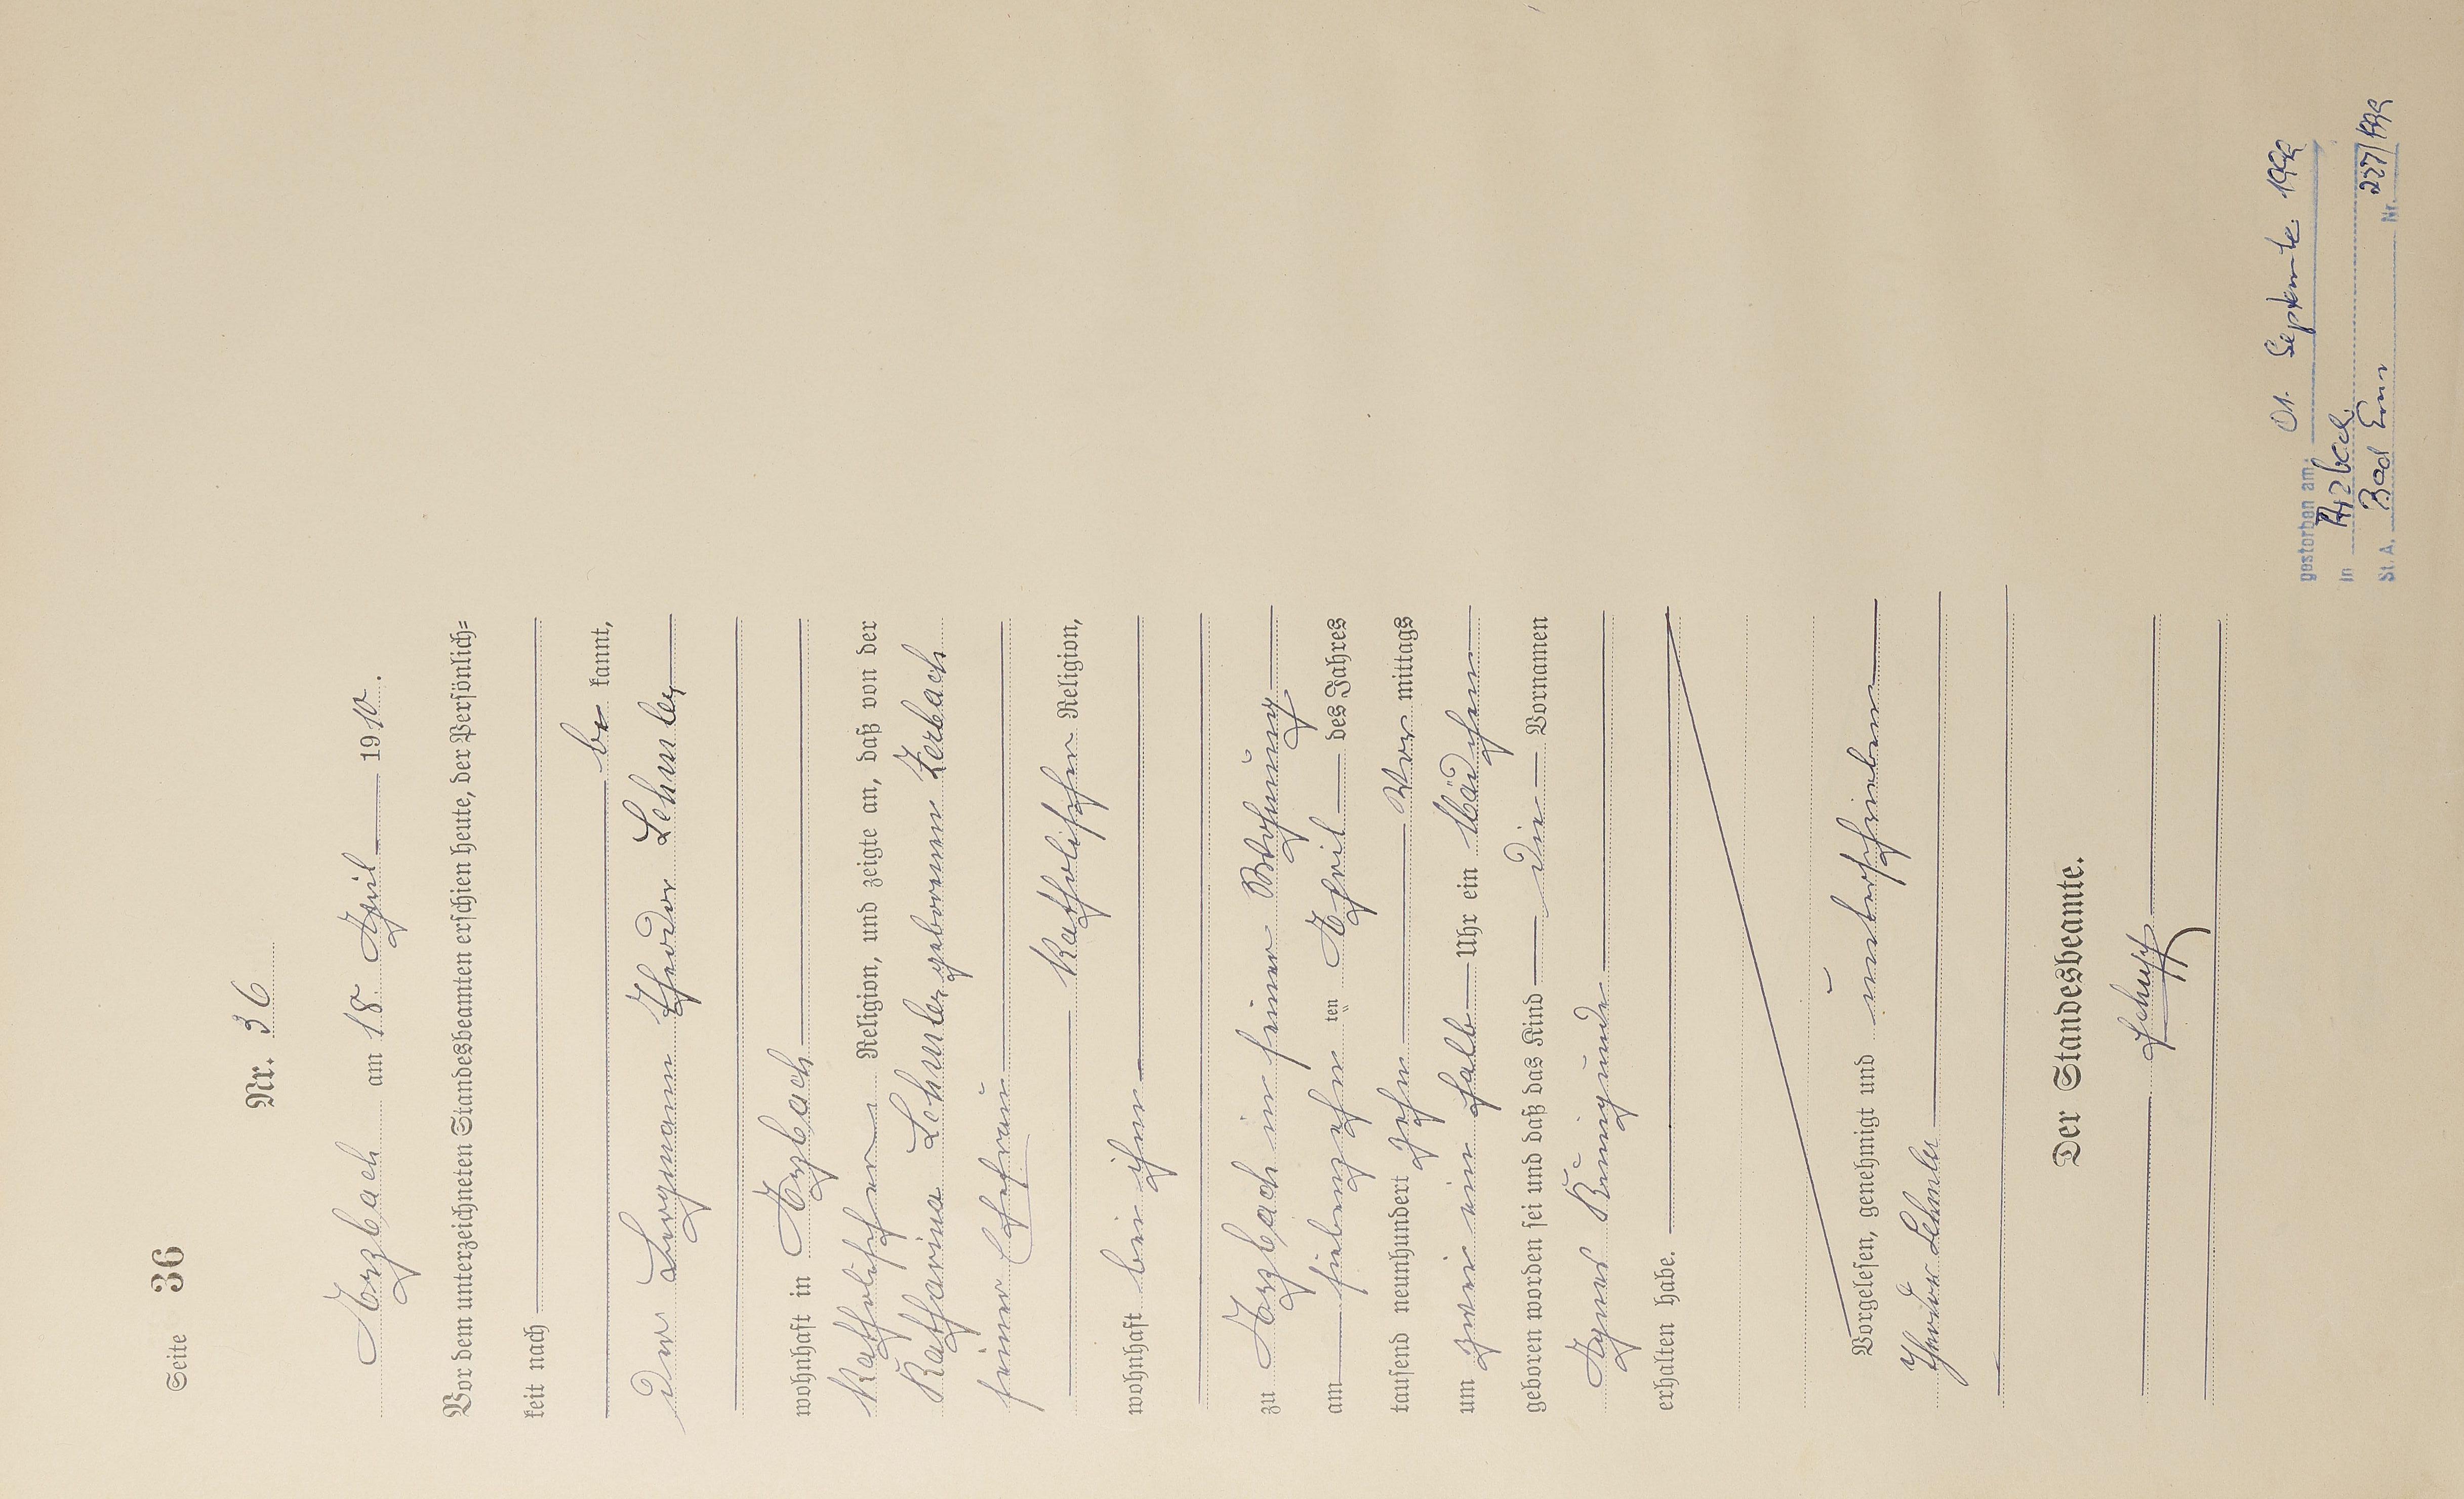 Seite 36
Nr. 36
Arzbach am 18. April 1910.
Vor dem unterzeichneten Standesbeamten erschien heute, der Persönlich=
keit nach
be kannt,
der Bergmann Theodor Lehmler
wohnhaft in Arzbach
Katholischer Religion, und zeigte an, daß von der
Katharina Lehmler geborenen Zerbach
seiner Ehefrau
Katholischer Religion,
wohnhaft bei ihm
zu Arzbach in seiner Wohnung
am siebenzehn ten April des Jahres
tausend neunhundert zehn Vor mittags
um zwei ein halb Uhr ein Mädchen
geboren worden sei und daß das Kind die Vornamen
Agnes Kunigunde
erhalten habe.
Vorgelesen, genehmigt und unterschrieben
Theodor Lehmler
Der Standesbeamte.
Schupp
gestorben am: 01. September
in Arzbach
St. A. Bad Ems Nr. 227/